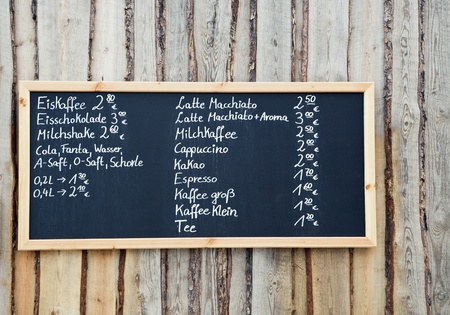 Eiskaffee 2 80 €
Eisschokolade 3 00 €
Milchshake 2 60 €
Cola, Fanta, Wasser,
A-Saft, O-Saft, Schorle
0,2L → 1 30 €
0,4L → 2 10 €
Latte Macchiato 2 50 €
Latte Macchiato + Aroma 3 00 €
Milchkaffee 2 50 €
Cappuccino 2 00 €
Kakao 2 00 €
Espresso 1 70 €
Kaffee groß 1 60 €
Kaffee Klein 1 20 €
Tee 1 20 €